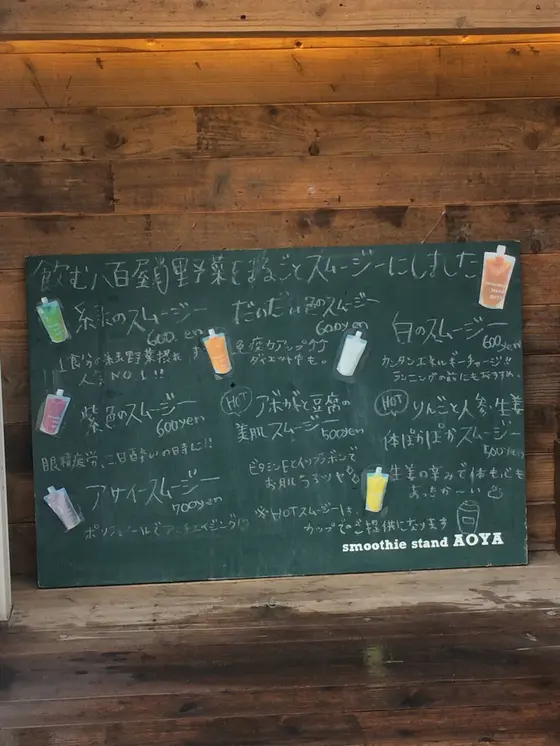 飲む八百屋 野菜をまるごとスムージーにしました
緑のスムージー
600yen
1食分の緑野菜摂れます
人気NO1!!
だいだい色のスムージー
600yen
免疫力アップ
ダイエットにも。
白のスムージー
600yen
カンタンエネルギーチャージ!!
ランニングの前にもおすすめ
紫色のスムージー
600yen
眼精疲労、二日酔いの日に!!
HOT アボカドと豆腐の
美肌スムージー
500yen
ビタミンEとイソフラボンで
お肌うるツヤ
HOT りんごと人参・生姜
体ぽかぽかスムージー
500yen
生姜の辛みで体も心も
あったか〜い
アサイースムージー
700yen
ポリフェノールでアンチエイジング
※HOTスムージーは、
カップでのご提供になります
smoothie stand AOYA